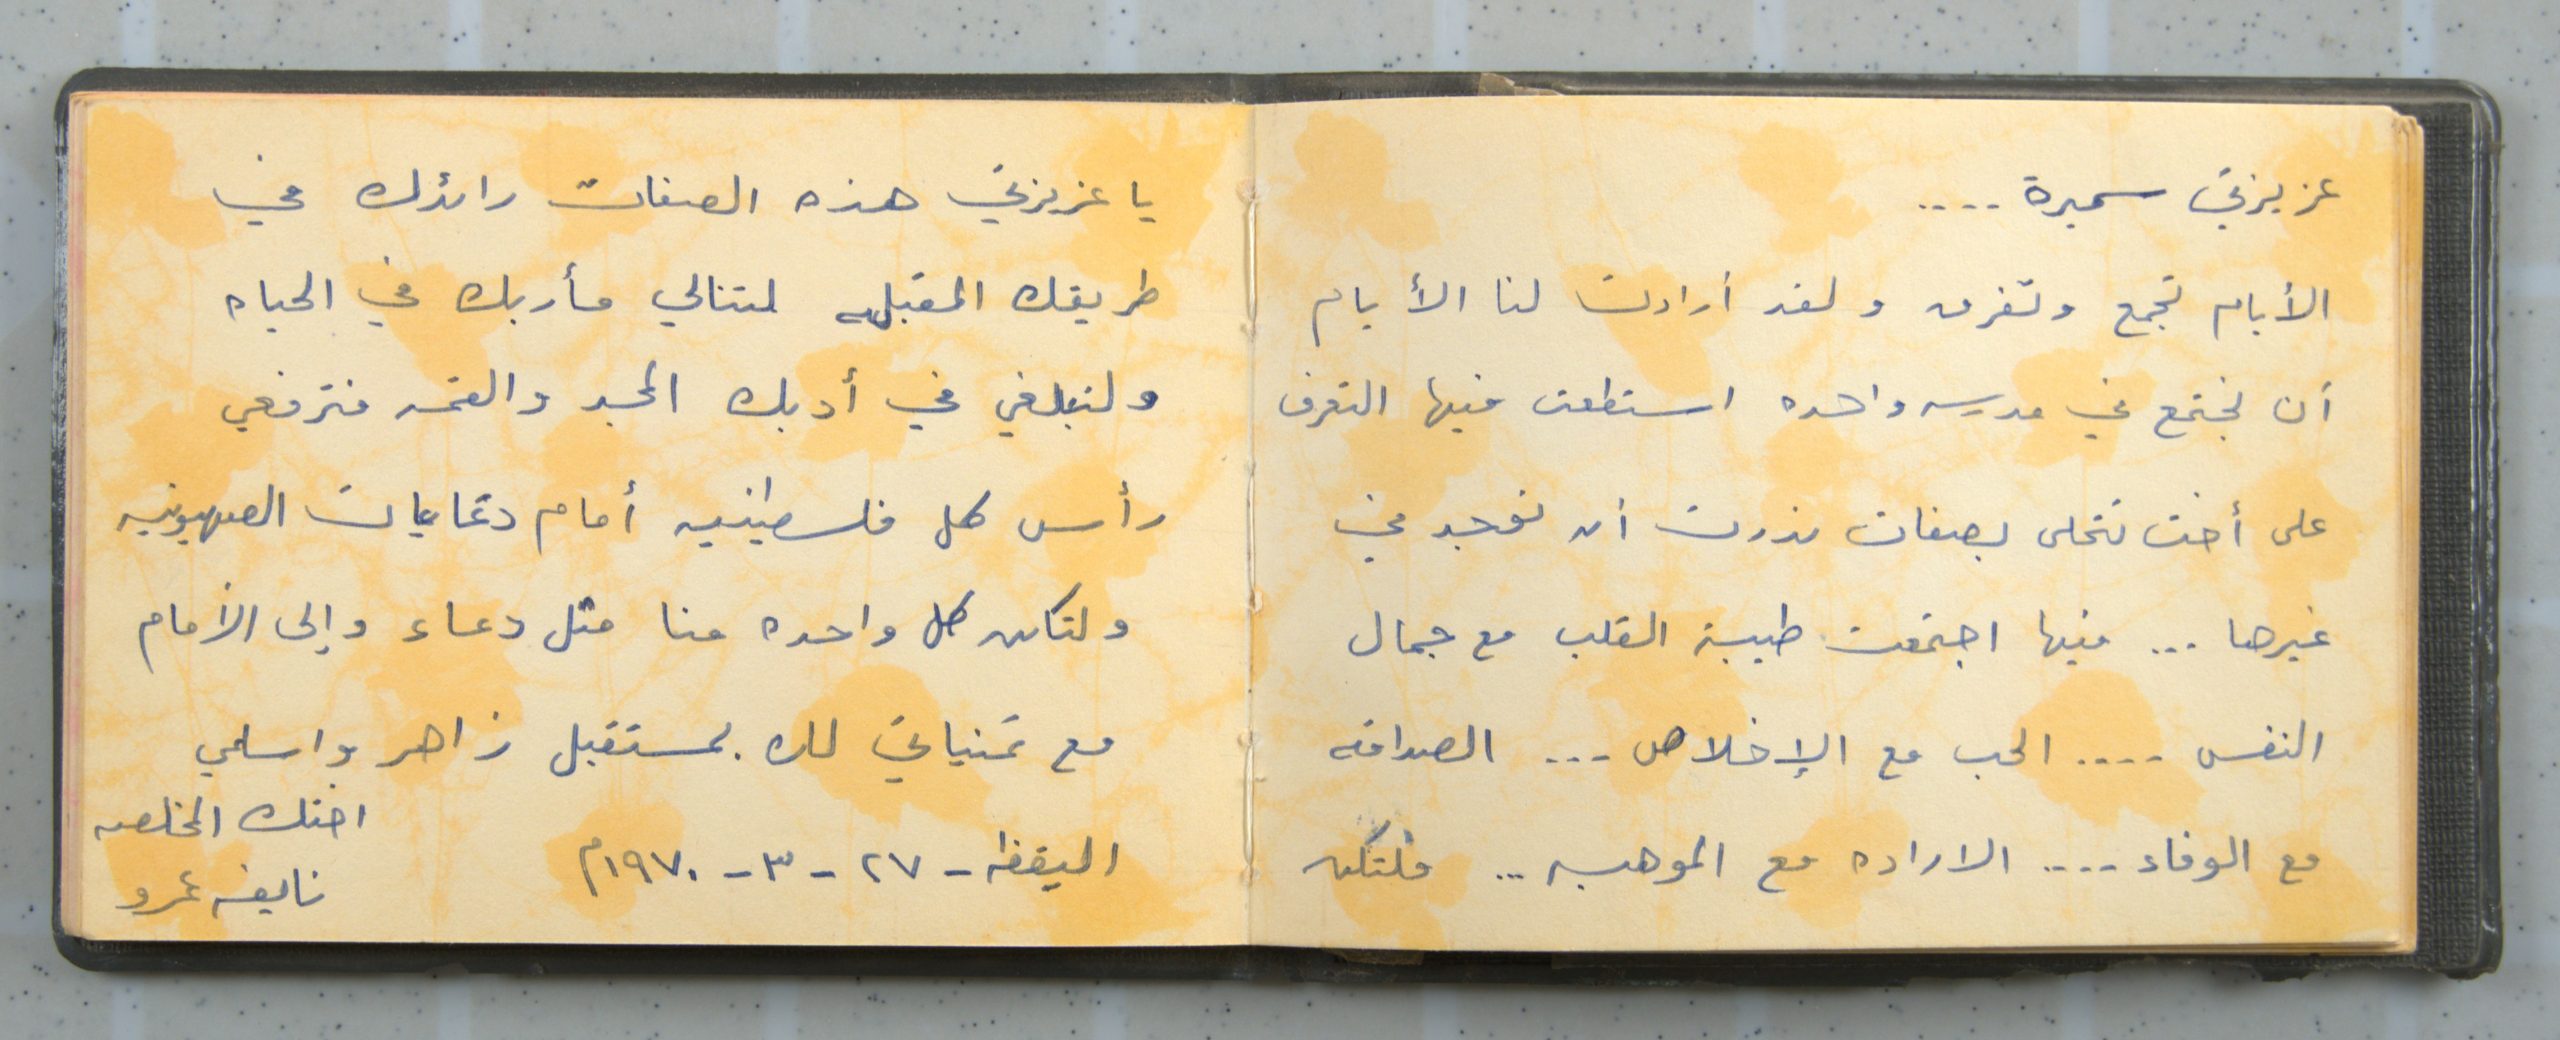 عزيزتي سميرة ....
الأيام تجمع وتفرق ولقد أرادت لنا الأيام
أن نجتمع في مدرسه واحده استطعت فيها التعرف
على أخت تتحلى بصفات ندرت أن توجد في
غيرها ... فيها اجتمعت طيبة القلب مع جمال
النفس .... الحب مع الإخلاص ... الصداقه
مع الوفاء .... الاراده مع الموهبه ... فلتكن
يا عزيزتي هذه الصفات رائدك في
طريقك المقبل لتنالي مأربك في الحياه
ولتبلغي في أدبك المجد والقمه فترفعي
رأس كل فلسطينيه أمام دعايات الصهيونيه
ولتكن كل واحده منا مثل دعاء وإلى الأمام
مع تمنياتي لك بمستقبل زاهر واسلمي
اختك المخلصه
اليقظه - ٢٧ - ٣ - ١٩٧٠م
نايفه عمرو